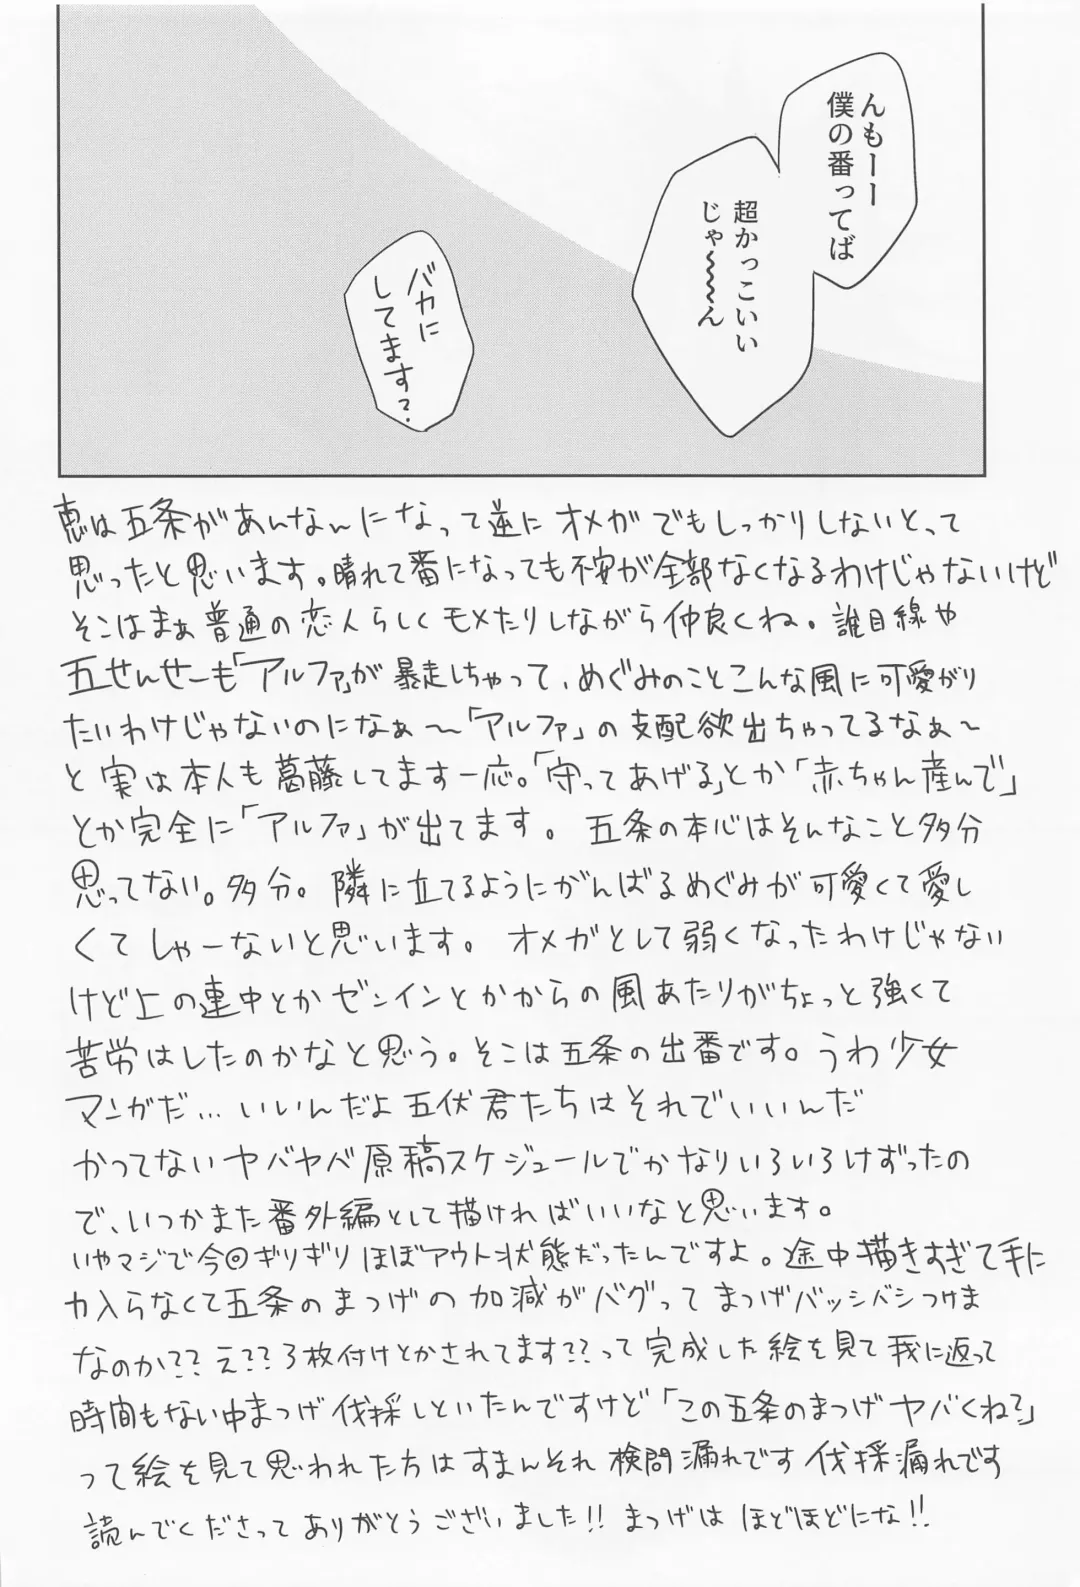 んもーー
僕の番ってば
超かっこいい
じゃ〜〜〜ん
バカに
してます？
恵は五条があんなんになって逆にオメガでもしっかりしないとって
思ったと思います。晴れて番になっても不安が全部なくなるわけじゃないけど
そこはまぁ普通の恋人らしくモメたりしながら仲良くね。誰目線や
五せんせーも「アルファ」が暴走しちゃって、めぐみのことこんな風に可愛がり
たいわけじゃないのになぁ〜「アルファ」の支配欲出ちゃってるなぁ〜
と実は本人も葛藤してます一応。「守ってあげる」とか「赤ちゃん産んで」
とか完全に「アルファ」が出てます。五条の本心はそんなこと多分
思ってない。多分。隣に立てるようにがんばるめぐみが可愛くて愛し
くてしゃーないと思います。オメガとして弱くなったわけじゃない
けど上の連中とかゼンインとかからの風あたりがちょっと強くて
苦労はしたのかなと思う。そこは五条の出番です。うわ少女
マンガだ…いいんだよ五伏君たちはそれでいいんだ
かつてないヤバヤベ原稿スケジュールでかなりいろいろけずったの
で、いつかまた番外編として描ければいいなと思います。
いやマジで今回ギリギリほぼアウト状態だったんですよ。途中描きすぎて手に
力入らなくて五条のまつげの加減がバグってまつげバッシバシつけま
なのか??え??3枚付けとかされてます??って完成した絵を見て我に返って
時間もない中まつげ伐採しといたんですけど「この五条のまつげヤバくね?」
って絵を見て思われた方はすまんそれ検問漏れです伐採漏れです
読んでくださってありがとうございました!!まつげはほどほどにな!!